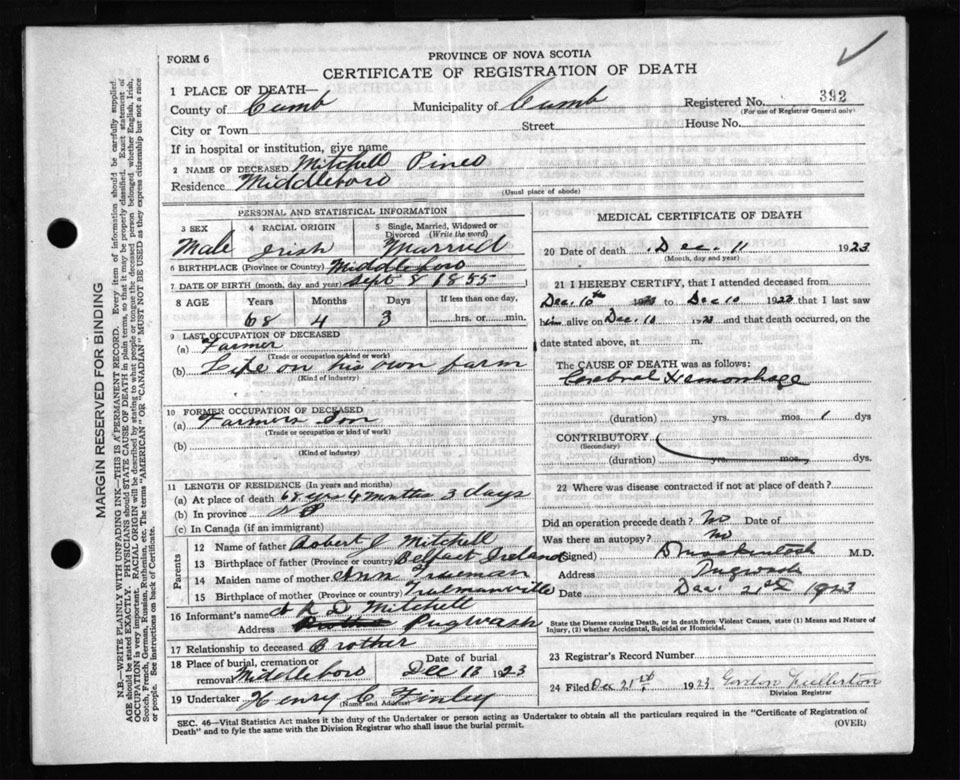 FORM 6
PROVINCE OF NOVA SCOTIA
CERTIFICATE OF REGISTRATION OF DEATH
1 PLACE OF DEATH—
County of Cumb Municipality of Cumb Registered No. 392
(For use of Registrar General only)
City or Town Street House No.
If in hospital or institution, give name
2 NAME OF DECEASED Mitchell Pineo
Residence Middleboro
(Usual place of abode)
PERSONAL AND STATISTICAL INFORMATION
3 SEX 4 RACIAL ORIGIN 5 Single, Married, Widowed or Divorced (Write the word)
Male Irish Married
6 BIRTHPLACE (Province or Country) Middleboro
7 DATE OF BIRTH (month, day and year) Sept 8 1855
8 AGE Years Months Days If less than one day,
68 4 3 hrs. or min.
9 LAST OCCUPATION OF DECEASED
(a) Farmer
(Trade or occupation or kind of work)
(b) Life on his own farm
(Kind of industry)
10 FORMER OCCUPATION OF DECEASED
(a) Farmers Son
(Trade or occupation or kind of work)
(b)
(Kind of industry)
11 LENGTH OF RESIDENCE (In years and months)
(a) At place of death 68 yrs 4 months 3 days
(b) In province
(c) In Canada (if an immigrant)
Parents
12 Name of father Robert J Mitchell
13 Birthplace of father (Province or Country) Belfast Ireland
14 Maiden name of mother Ann Trueman
15 Birthplace of mother (Province or Country) Truemanville
16 Informant's name D Mitchell
Address Pugwash
17 Relationship to deceased Brother
18 Place of burial, cremation or removal Middleboro Date of burial Dec 13 1923
19 Undertaker Henry C Finley
(Name and Address)
MEDICAL CERTIFICATE OF DEATH
20 Date of death Dec. 11 1923
(Month, day and year)
21 I HEREBY CERTIFY, that I attended deceased from
Dec. 10th 1923 to Dec 10 1923 that I last saw
him alive on Dec. 10 1923 and that death occurred, on the
date stated above, at m.
The CAUSE OF DEATH was as follows:
Cerebral Hemorrhage
(duration) yrs. mos. 1 dys
CONTRIBUTORY
(Secondary)
(duration) yrs. mos. dys.
22 Where was disease contracted if not at place of death?
Did an operation precede death? No Date of
Was there an autopsy? No
(Signed) M.D.
Address Pugwash
Date Dec. 21st 1923
State the Disease causing Death, or in death from Violent Causes, state (1) Means and Nature of
Injury, (2) whether Accidental, Suicidal or Homicidal.
23 Registrar's Record Number
24 Filed Dec 21st 1923 Gordon Fullerton
Division Registrar
SEC. 46—Vital Statistics Act makes it the duty of the Undertaker or person acting as Undertaker to obtain all the particulars required in the "Certificate of Registration of
Death" and to fyle the same with the Division Registrar who shall issue the burial permit. (OVER)
MARGIN RESERVED FOR BINDING
N.B.—WRITE PLAINLY WITH UNFADING INK—THIS IS A PERMANENT RECORD. Every item of information should be carefully supplied.
AGE should be stated EXACTLY. PHYSICIANS should STATE CAUSE OF DEATH in plain terms, so that it may be properly classified. Exact statement of
OCCUPATION is very important. RACIAL ORIGIN will be described by stating to what people or tongue the deceased person belonged whether English, Irish,
Scotch, French, German, Russian, Ruthenian, etc. The terms "AMERICAN" OR "CANADIAN" MUST NOT BE USED as they express citizenship but not a race
or people. See instructions on back of Certificate.